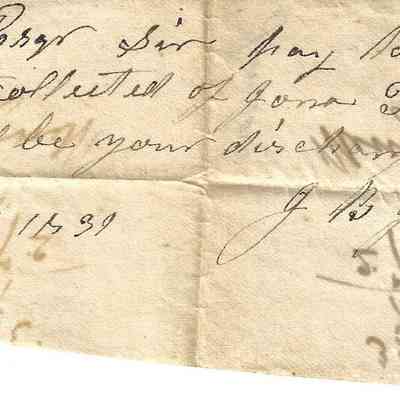 Esqr Sir pay
collected of Jona
be your discharg
1831
J B